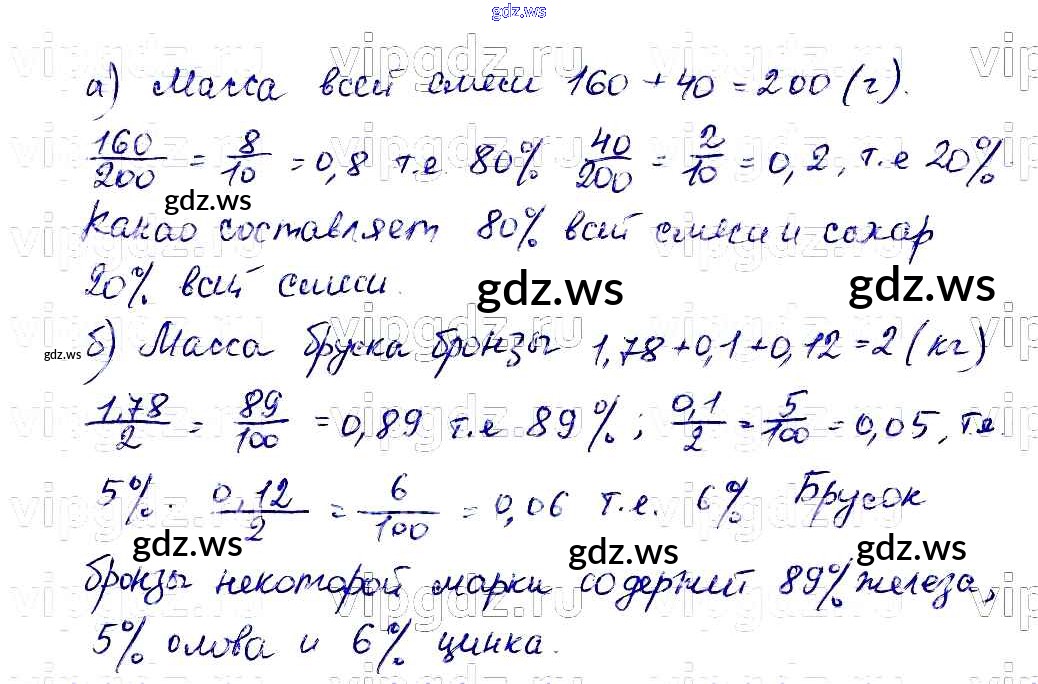 gdz.ws
а) Масса всей смеси 160 + 40 = 200 (г).
160/200 = 8/10 = 0,8 т.е. 80% 40/200 = 2/10 = 0,2, т.е 20%
gdz.ws
Какао составляет 80% всей смеси и сахар
20% всей смеси.
gdz.ws gdz.ws
gdz.ws б) Масса бруска бронзы 1,78+0,1+0,12=2 (кг)
1,78/2 = 89/100 = 0,89 т.е 89%; 0,1/2 = 5/100 = 0,05, т.е.
5%. 0,12/2 = 6/100 = 0,06 т.е. 6% Брусок
gdz.ws gdz.ws gdz.ws
бронзы некоторой марки содержит 89% железа,
5% олова и 6% цинка.